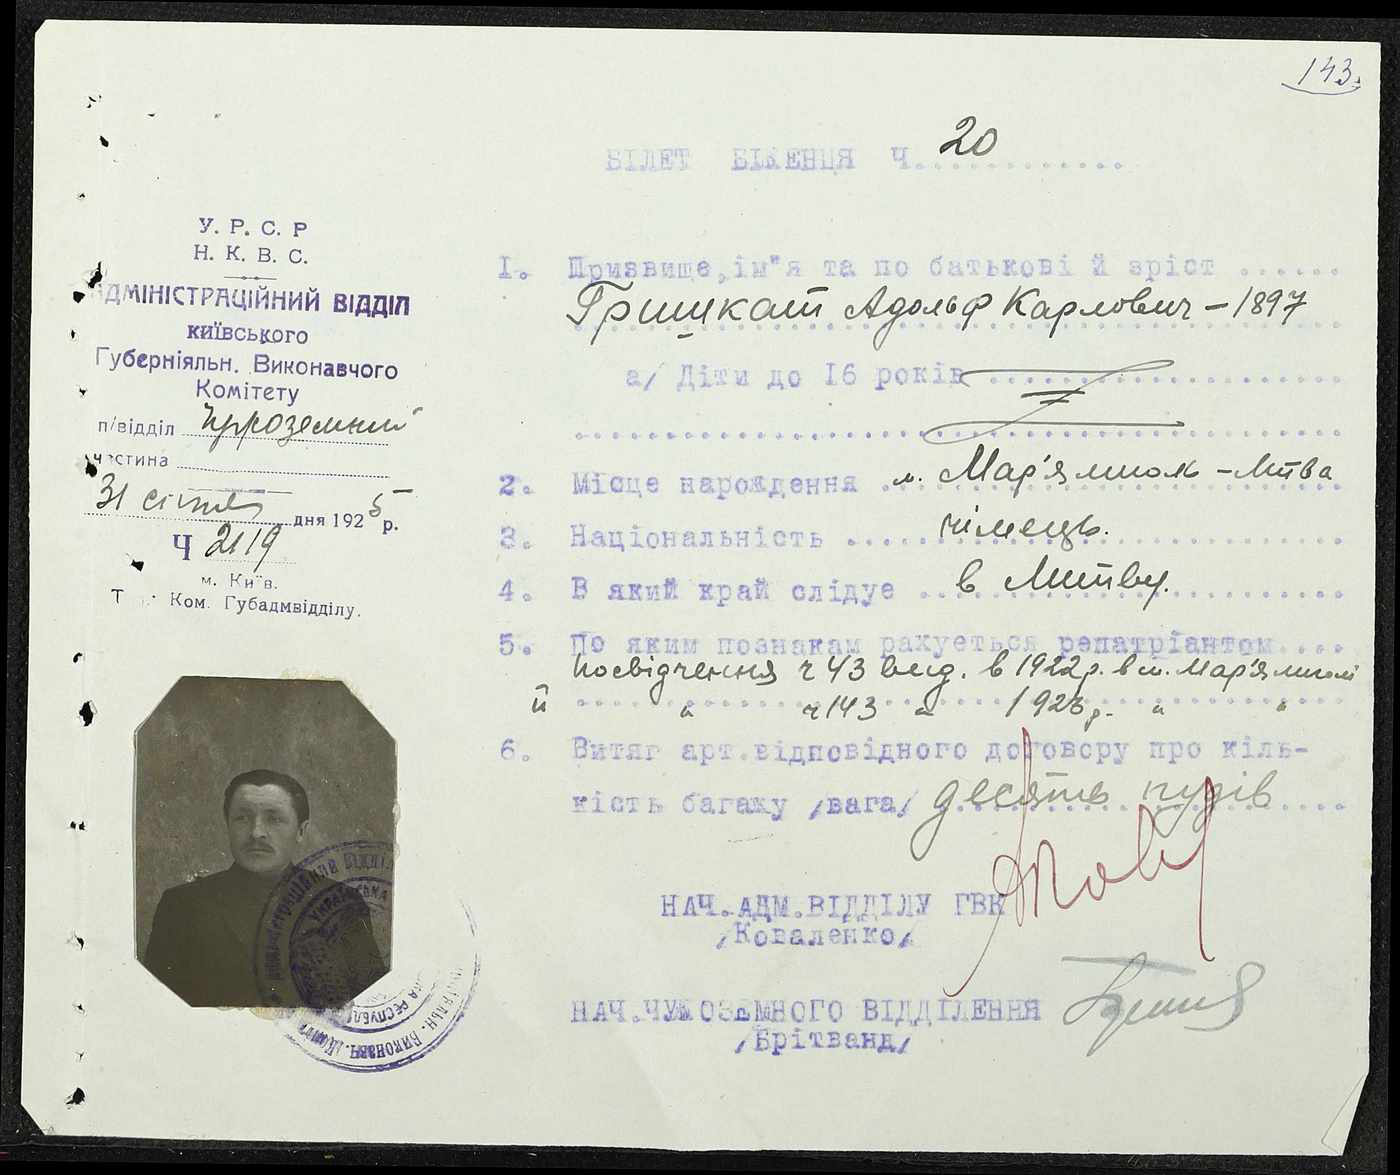 143.
БІЛЕТ БІЖЕНЦЯ Ч. 20
У. Р. С. Р
Н. К. В. С.
АДМІНІСТРАЦІЙНИЙ ВІДДІЛ
київського
Губерніяльн. Виконавчого
Комітету
п/відділ
частина
31 січня дня 1925 р.
Ч 2119
м. Київ.
Ком. Губадмвідділу.
1. Призвище, ім"я та по батькові й зріст
Гришкат Адольф Карлович - 1897
а/ Діти до 16 років
2. Місце народження м. Мар'ямполь - Литва
3. Національність німець.
4. В який край слідує в Литву.
5. По яким познакам рахується репатріантом
посвідчення ч 43 вид. в 1922 р. в м. Мар'ямполі
й " ч 143 " 1923 р. " "
6. Витяг арт. відповідного договору про кіль-
кість багажу /вага/ десять пудів
НАЧ. АДМ. ВІДДІЛУ ГВК
/Коваленко/
НАЧ. ЧУЖОЗЕМНОГО ВІДДІЛЕННЯ
/Брітванд/